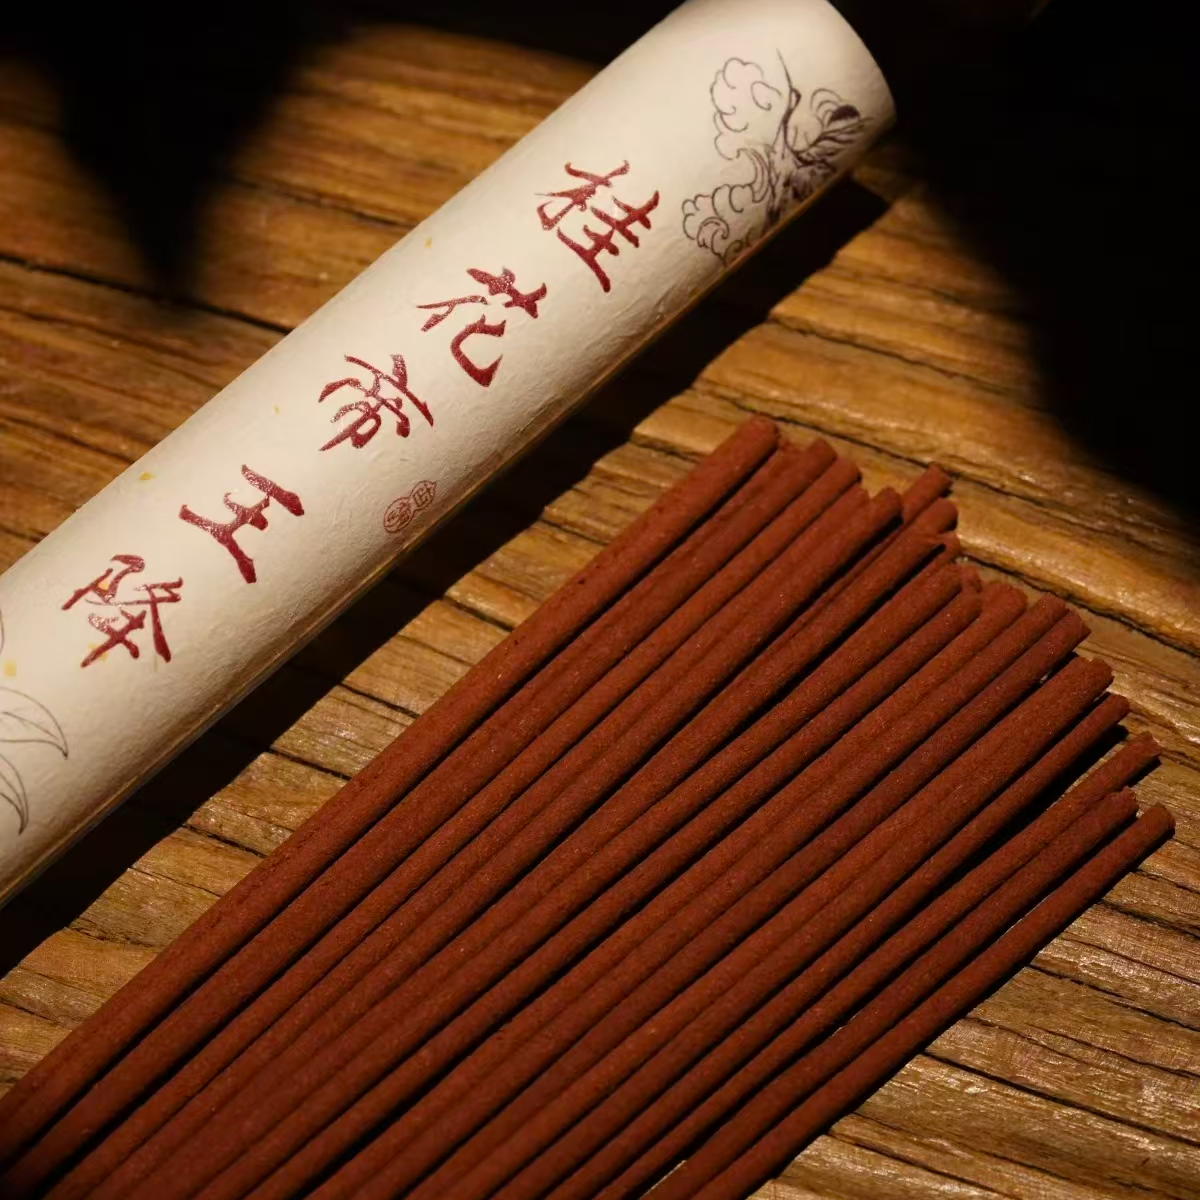 桂花帝王降